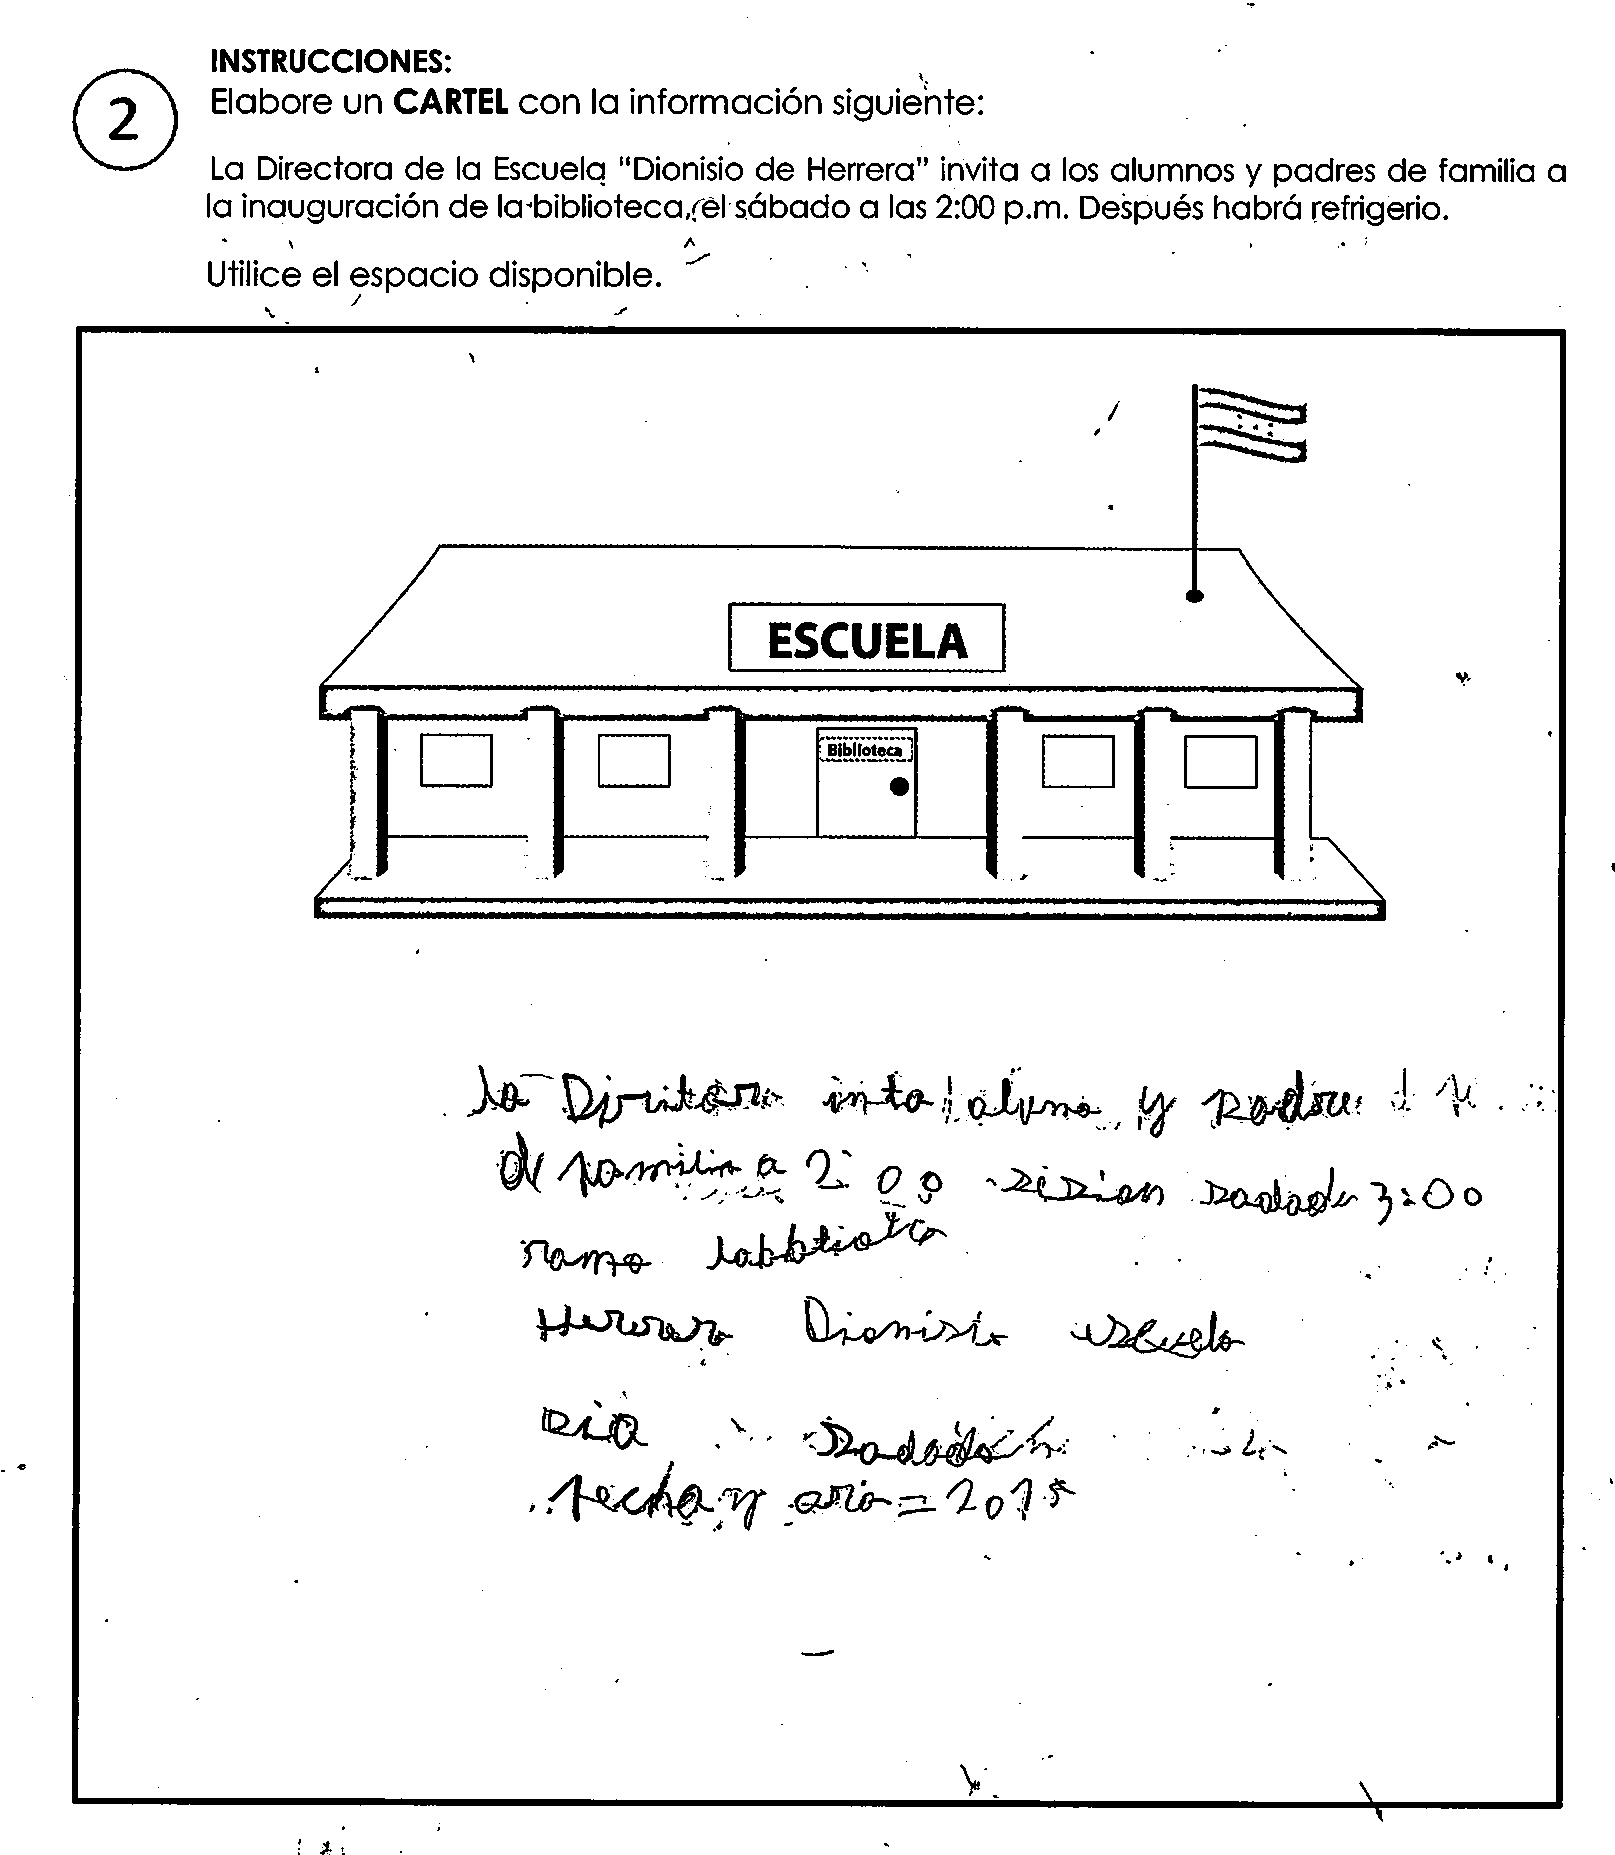 INSTRUCCIONES:
2
Elabore un CARTEL con la información siguiente:
La Directora de la Escuela "Dionisio de Herrera" invita a los alumnos y padres de familia a
la inauguración de la biblioteca, el sábado a las 2:00 p.m. Después habrá refrigerio.
Utilice el espacio disponible.
ESCUELA
Biblioteca
la inta aluno y
familia a 2:00 3:00
Herrera Dionisio escuela
dia
fecha y año = 2015